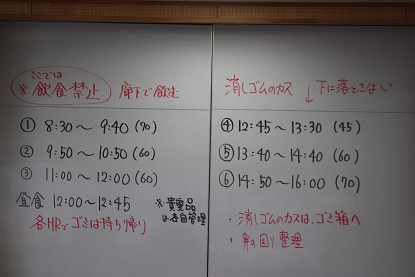 ここでは
※飲食禁止 廊下で飲む
① 8:30～9:40 (70)
② 9:50～10:50 (60)
③ 11:00～12:00 (60)
昼食 12:00～12:45
※貴重品
は各自管理
各HRでゴミは持ち帰り
消しゴムのカス ↓下に落とさない
④ 12:45～13:30 (45)
⑤ 13:40～14:40 (60)
⑥ 14:50～16:00 (70)
・消しゴムのカスは、ゴミ箱へ
・身の回り整理